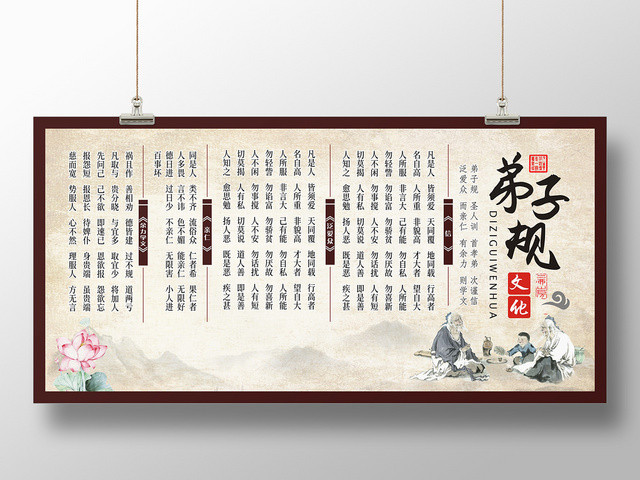 弟子规
DIZIGUIWENHUA
文化
弟子规 圣人训 首孝弟 次谨信
泛爱众 而亲仁 有余力 则学文
《信》
凡是人 皆须爱 天同覆 地同载 行高者
名自高 人所重 非貌高 才大者 望自大
人所服 非言大 己有能 勿自私 人所能
勿轻訾 勿谄富 勿骄贫 勿厌故 勿喜新
人不闲 勿事搅 人不安 勿话扰 人有短
切莫揭 人有私 切莫说 道人善 即是善
人知之 愈思勉 扬人恶 既是恶 疾之甚
《泛爱众》
凡是人 皆须爱 天同覆 地同载 行高者
名自高 人所重 非貌高 才大者 望自大
人所服 非言大 己有能 勿自私 人所能
勿轻訾 勿谄富 勿骄贫 勿厌故 勿喜新
人不闲 勿事搅 人不安 勿话扰 人有短
切莫揭 人有私 切莫说 道人善 即是善
人知之 愈思勉 扬人恶 既是恶 疾之甚
《亲仁》
同是人 类不齐 流俗众 仁者希 果仁者
人多畏 言不讳 色不媚 能亲仁 无限好
德日进 过日少 不亲仁 无限害 小人进
百事坏
《余力学文》
祸且作 善相劝 德皆建 过不规 道两亏
凡取与 贵分晓 与宜多 取宜少 将加人
先问己 己不欲 即速已 恩欲报 怨欲忘
报怨短 报恩长 待婢仆 身贵端 虽贵端
慈而宽 势服人 心不然 理服人 方无言